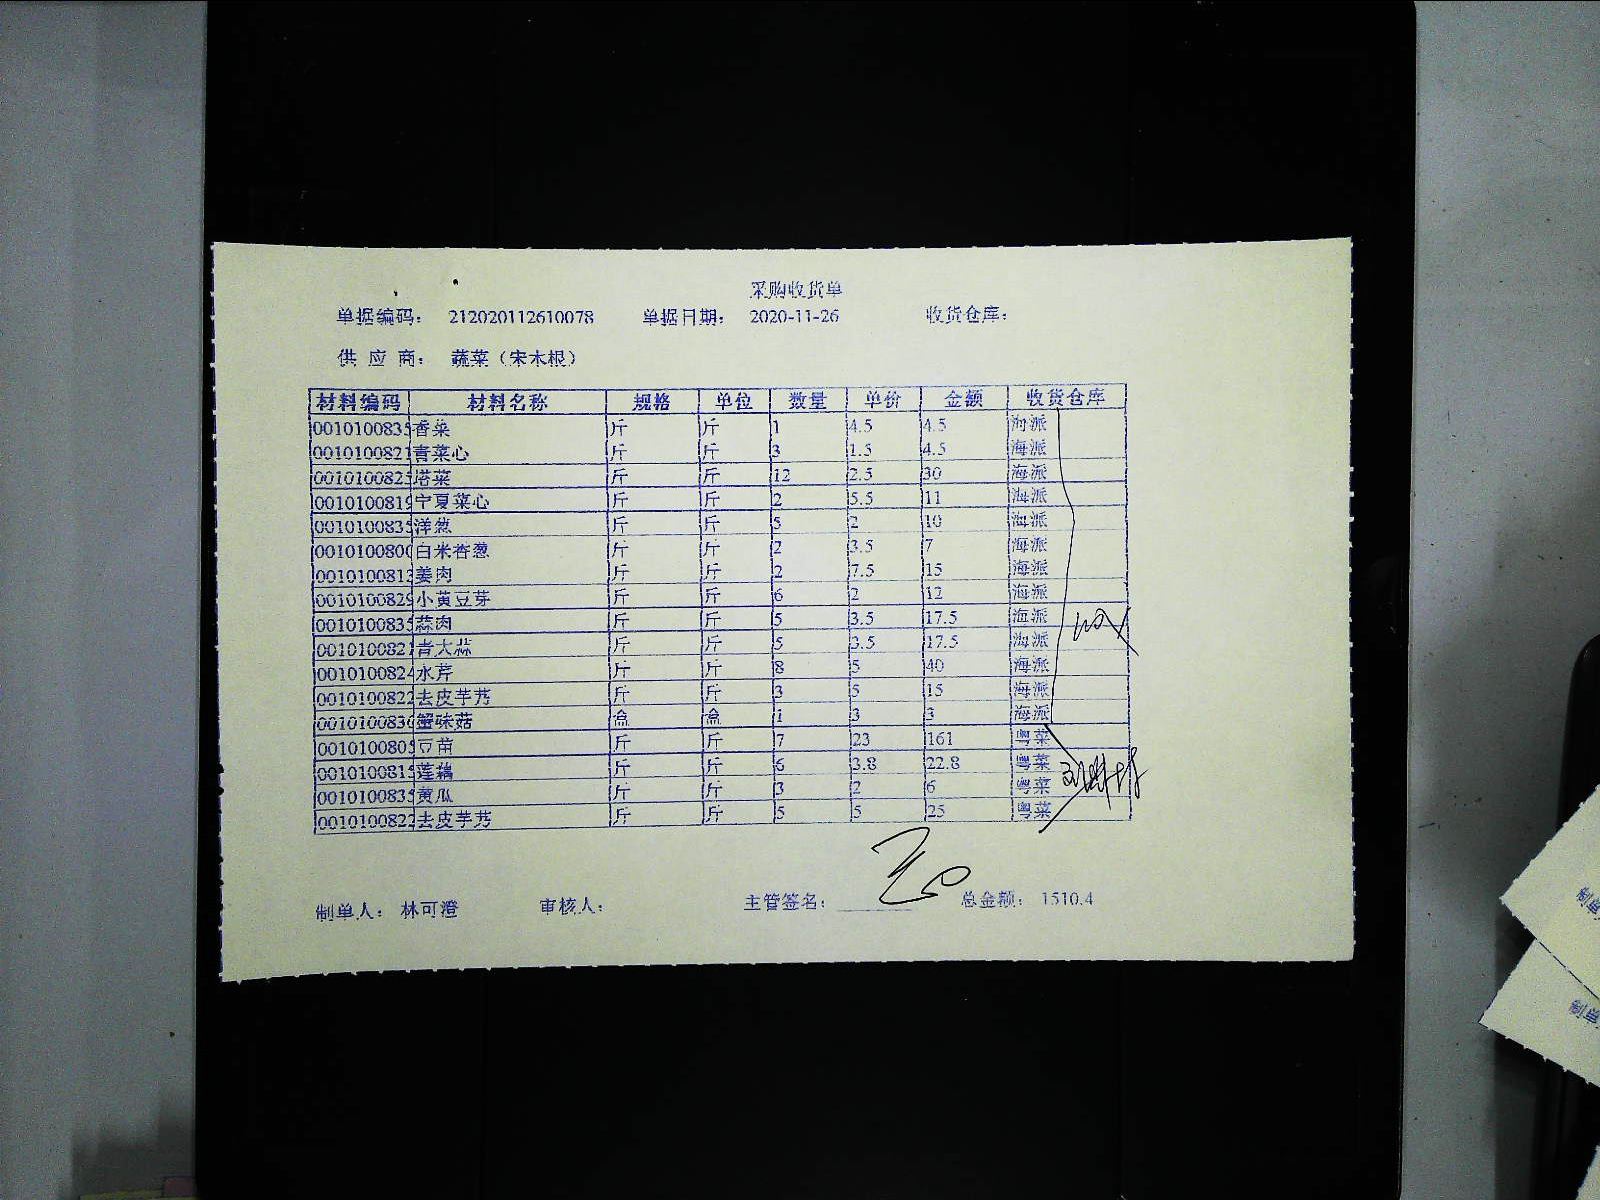 采购收货单
单据编码： 212020112610078 单据日期： 2020-11-26 收货仓库：
供 应 商： 蔬菜（宋木根）
材料编码 材料名称 规格 单位 数量 单价 金额 收货仓库
0010100835 香菜 斤 斤 1 4.5 4.5 海派
0010100821 青菜心 斤 斤 3 1.5 4.5 海派
0010100825 塔菜 斤 斤 12 2.5 30 海派
0010100819 宁夏菜心 斤 斤 2 5.5 11 海派
0010100835 洋葱 斤 斤 5 2 10 海派
0010100800 白米香葱 斤 斤 2 3.5 7 海派
0010100813 姜肉 斤 斤 2 7.5 15 海派
0010100829 小黄豆芽 斤 斤 6 2 12 海派
0010100835 蒜肉 斤 斤 5 3.5 17.5 海派
0010100821 青大蒜 斤 斤 5 3.5 17.5 海派
0010100824 水芹 斤 斤 8 5 40 海派
0010100822 去皮芋艿 斤 斤 3 5 15 海派
0010100830 蟹味菇 盒 盒 1 3 3 海派
0010100805 豆苗 斤 斤 7 23 161 粤菜
0010100815 莲藕 斤 斤 6 3.8 22.8 粤菜
0010100835 黄瓜 斤 斤 3 2 6 粤菜
0010100822 去皮芋艿 斤 斤 5 5 25 粤菜
制单人： 林可澄 审核人： 主管签名： 总金额： 1510.4